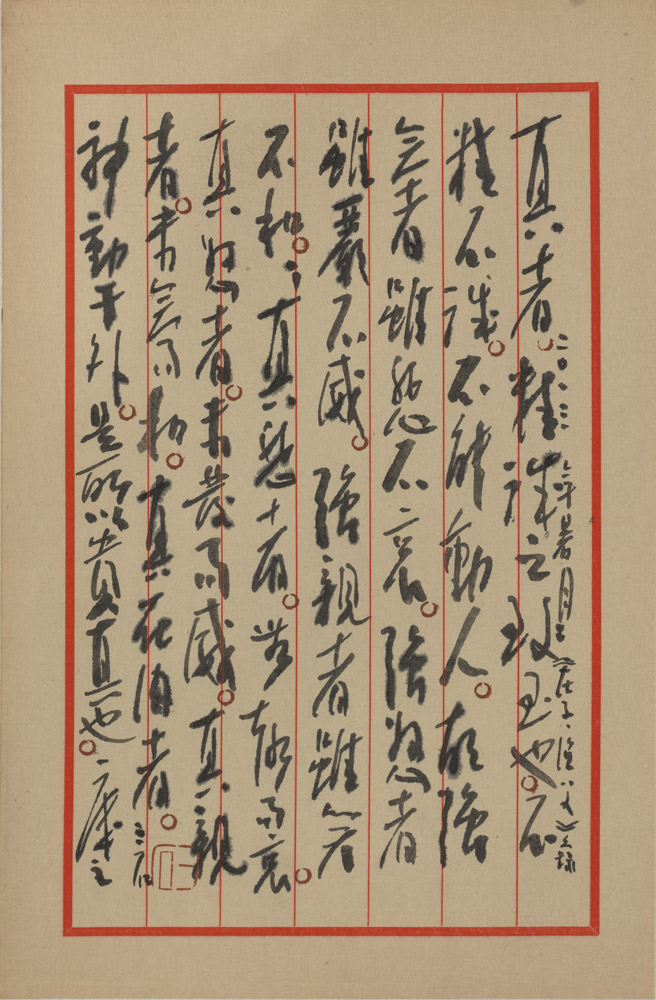 真者。精誠之至也。不
精不誠。不能動人。故強
哭者雖悲不哀。強怒者
雖嚴不威。強親者雖笑
不和。真悲 而哀。
真怒者。未發而威。真親
者。未笑而和。真在內者。
神動于外。是所以貴真也。
年暑月《莊子·漁父》